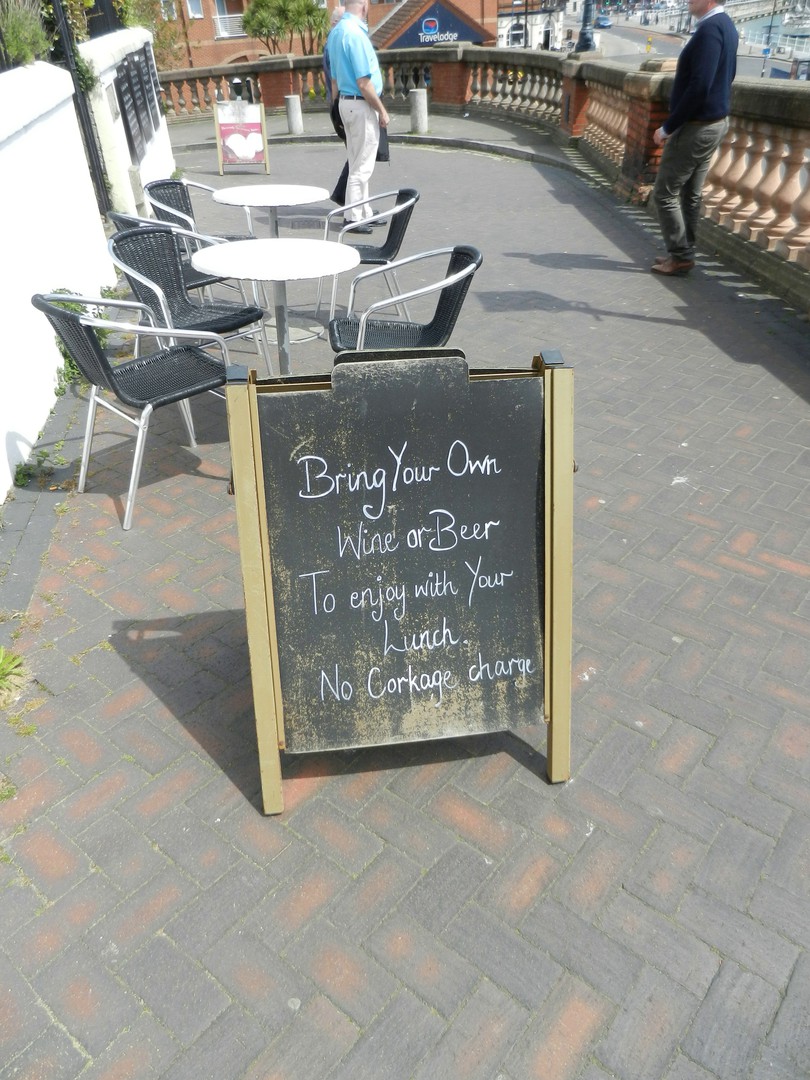 Travelodge
Bring Your Own
Wine or Beer
To enjoy with Your
Lunch.
No Corkage charge